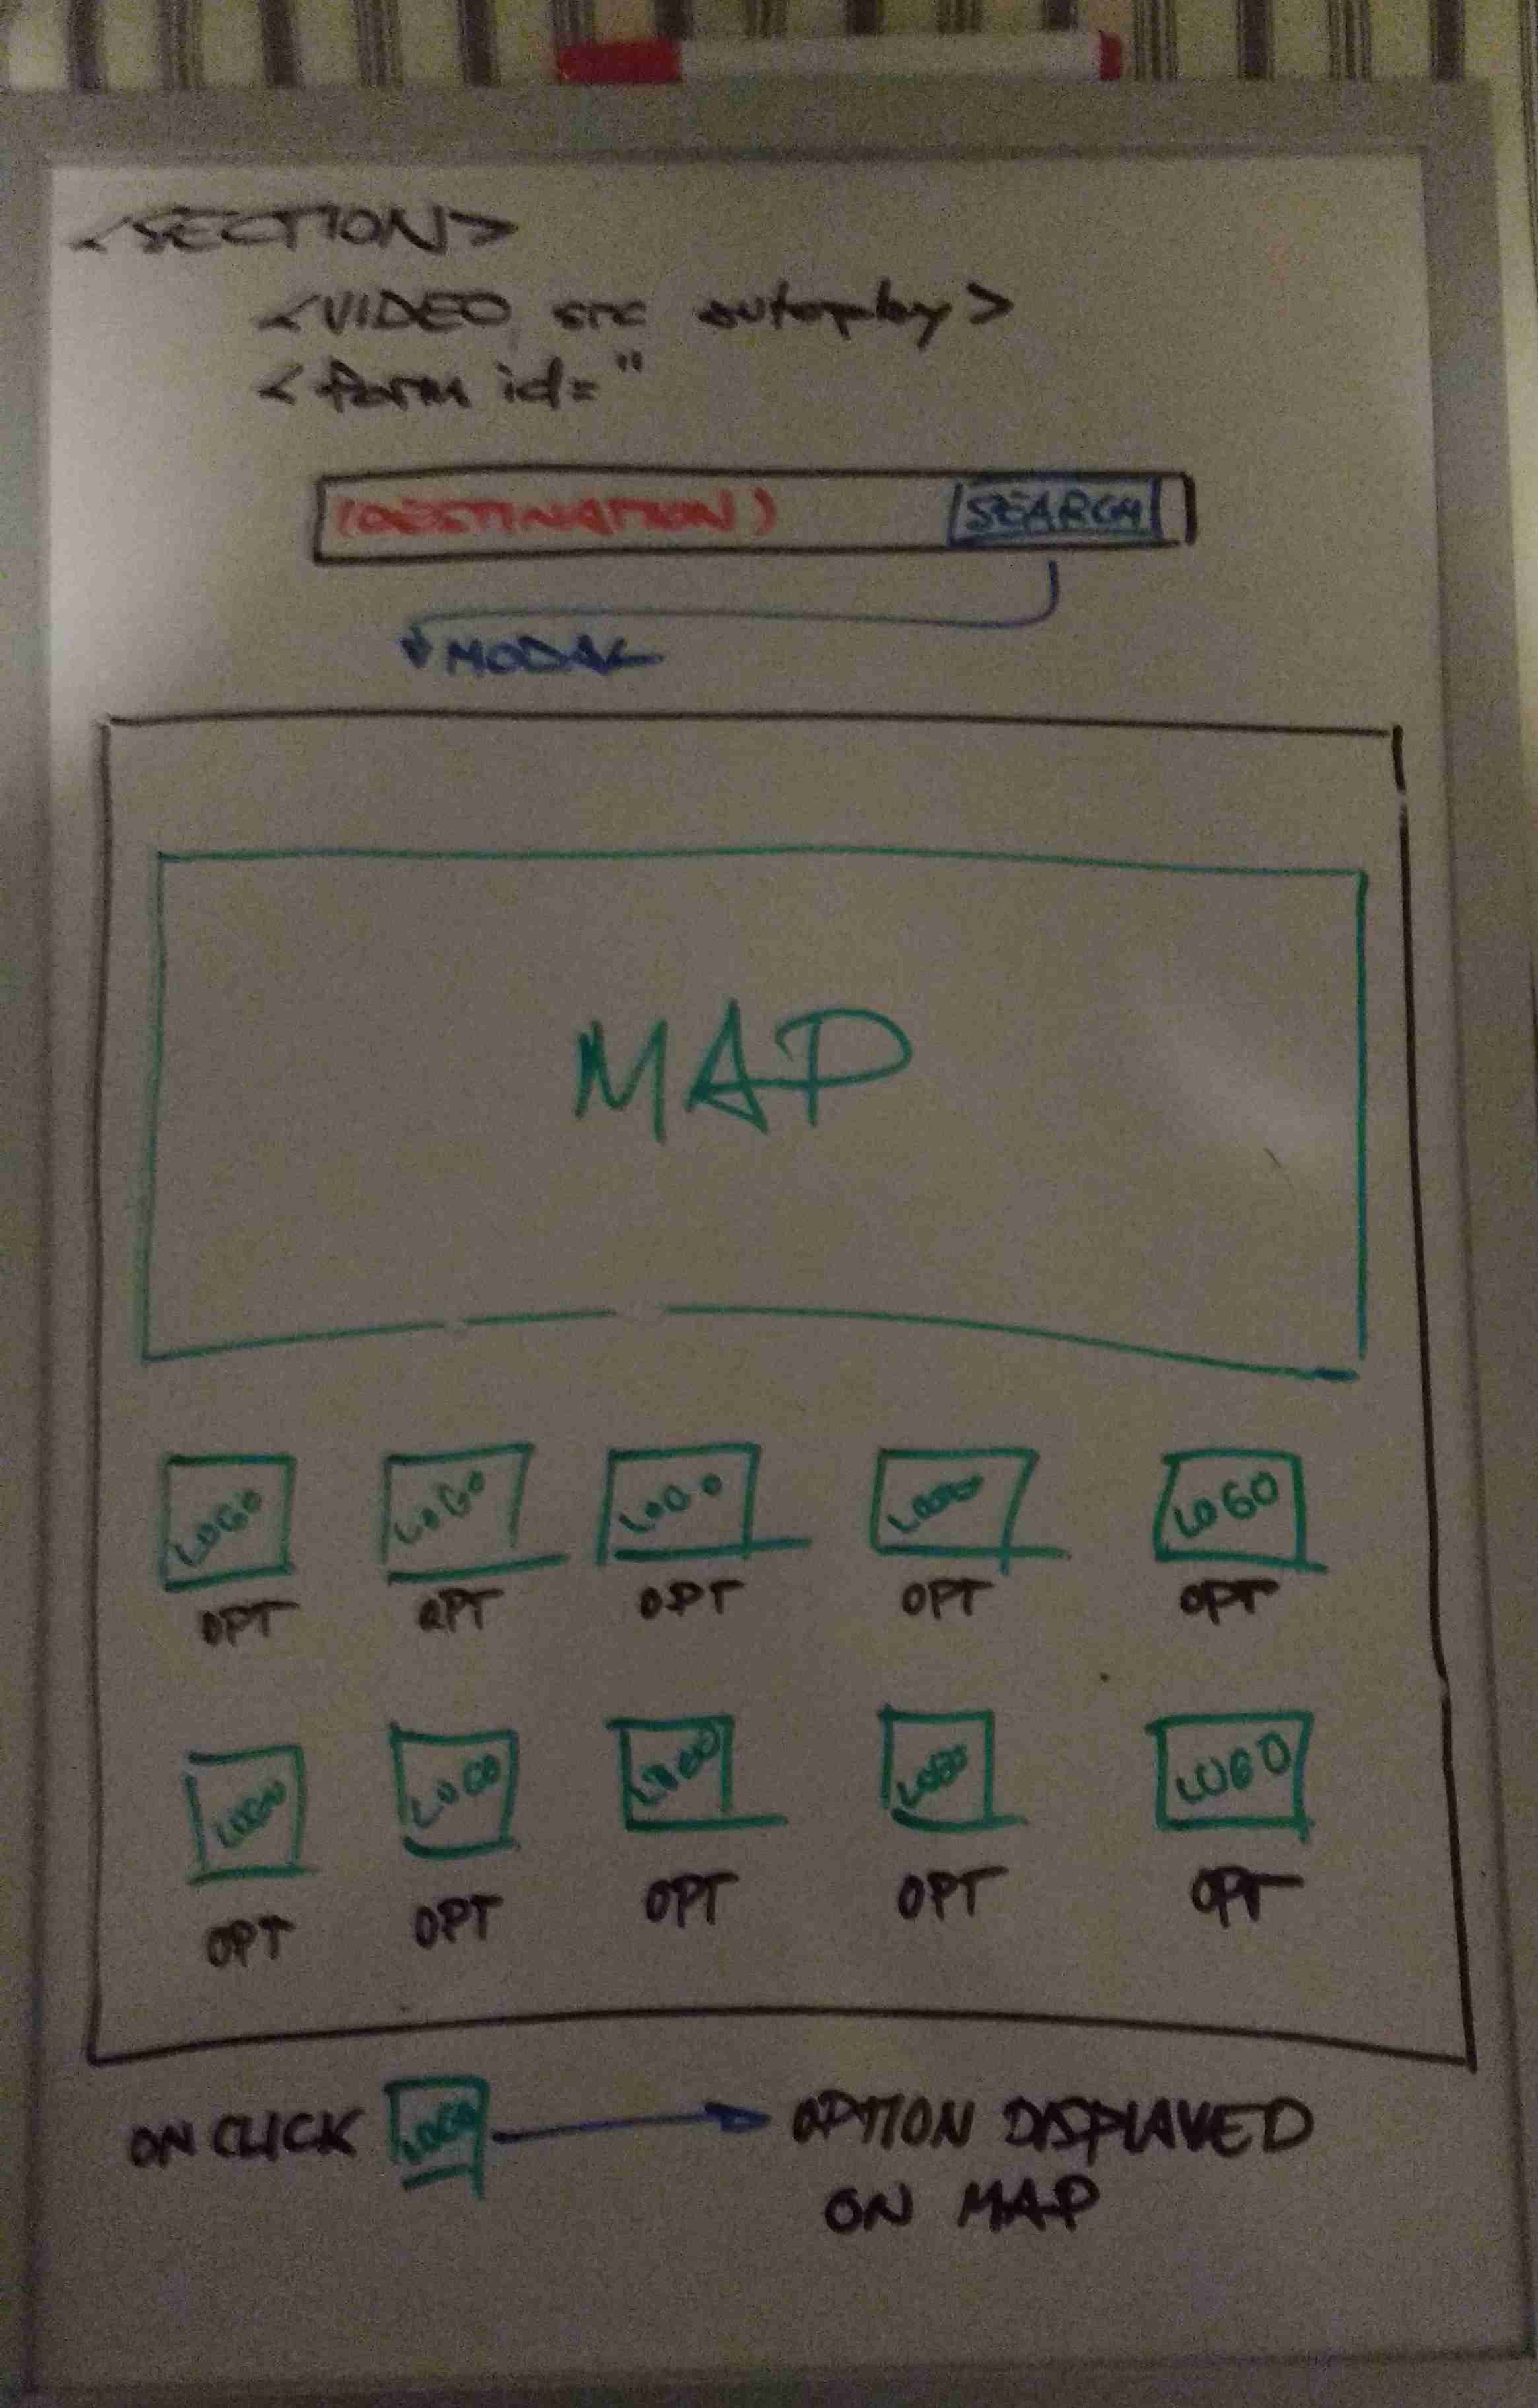 <SECTION>
<VIDEO src autoplay>
<form id="
(DESTINATION) SEARCH
MODAL
MAP
LOGO LOGO LOGO LOGO LOGO
OPT OPT OPT OPT OPT
LOGO LOGO LOGO LOGO LOGO
OPT OPT OPT OPT OPT
ON CLICK LOGO OPTION DISPLAYED
ON MAP